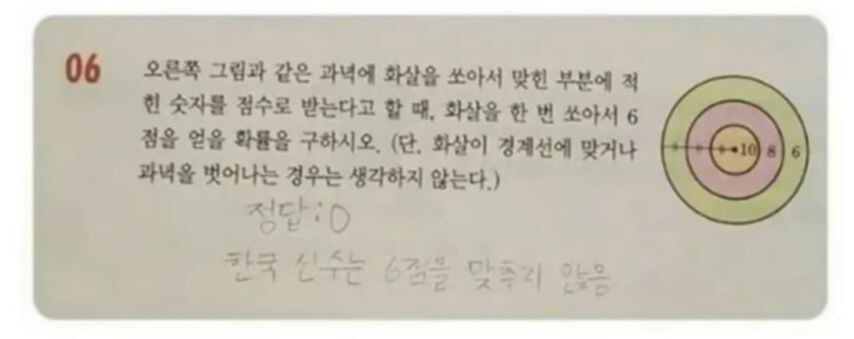 06
오른쪽 그림과 같은 과녁에 화살을 쏘아서 맞힌 부분에 적
힌 숫자를 점수로 받는다고 할 때, 화살을 한 번 쏘아서 6
점을 얻을 확률을 구하시오. (단, 화살이 경계선에 맞거나
과녁을 벗어나는 경우는 생각하지 않는다.)
10 8 6
정답:0
한국 선수는 6점을 맞추지 않음